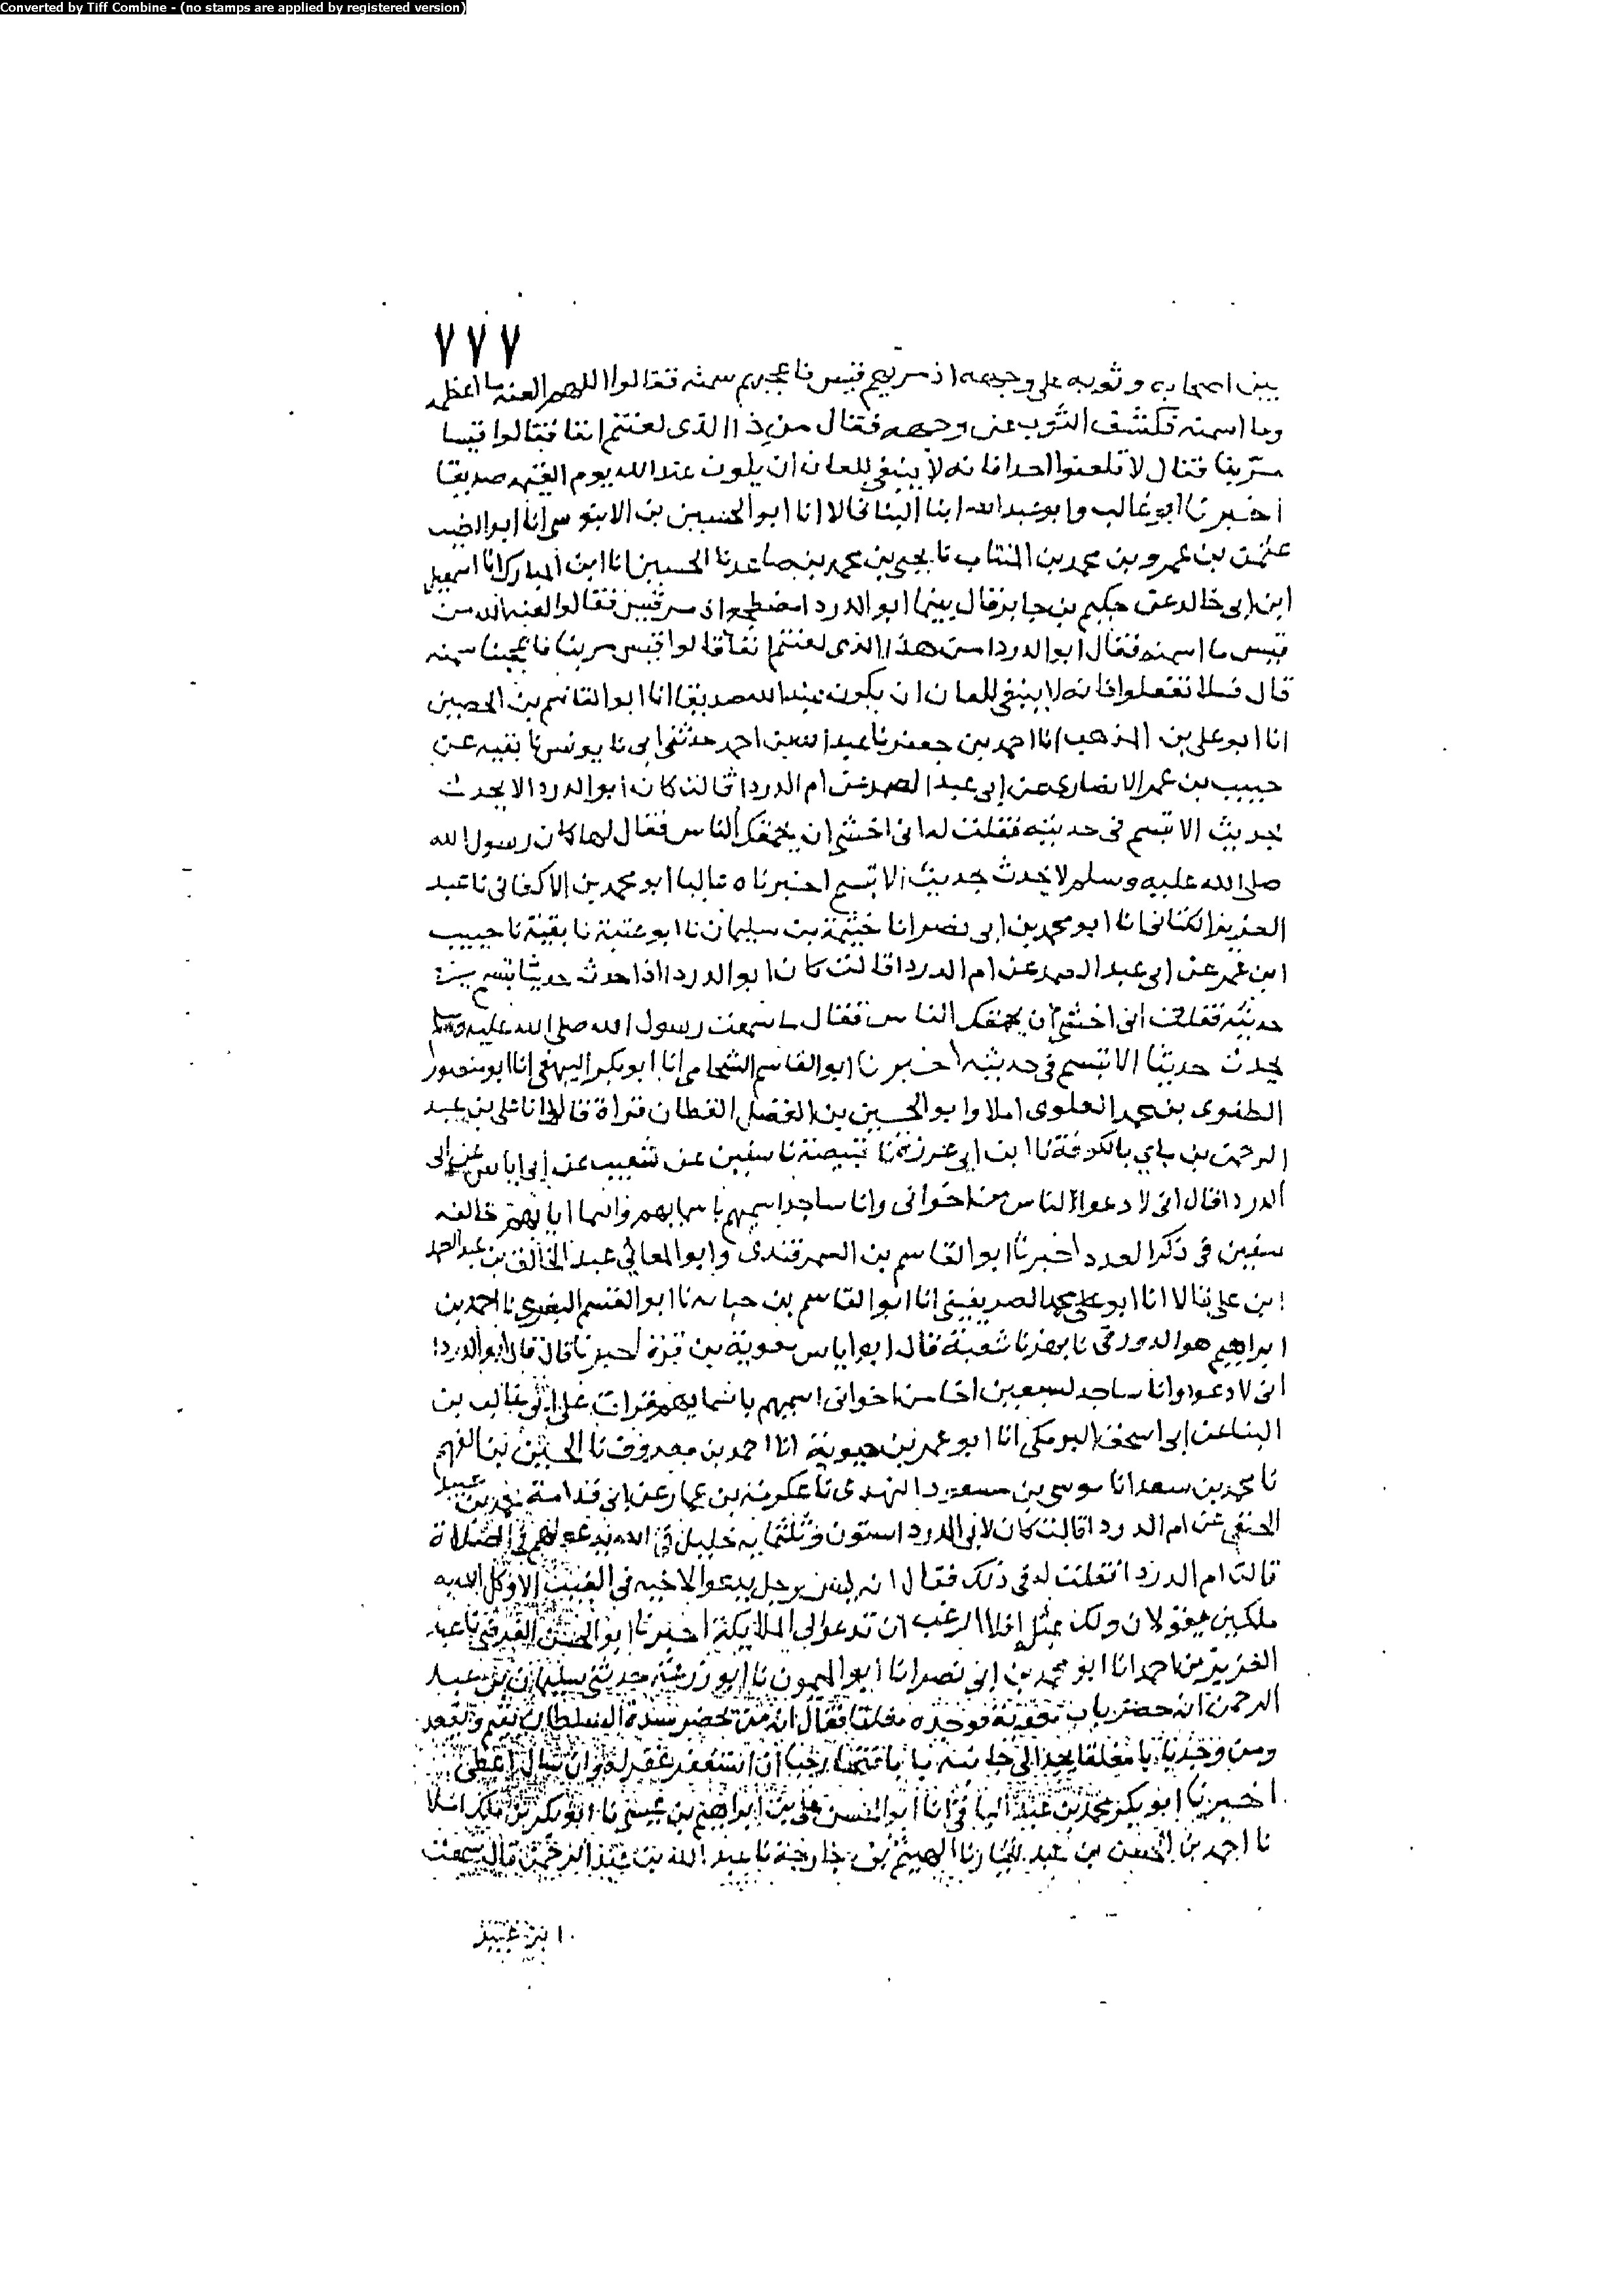 Converted by Tiff Combine - (no stamps are applied by registered version)
٧٧٧
بين اصحابه وثوبه على وجهه اذ مر بهم قس فاعجبهم سمنه فقالوا اللهم العنه ما اعظمه
وما اسمنه فكشف الثوب عن وجهه فقال من ذا الذى لعنتم انفا فقالوا قسا
مر بنا فقال لا تلعنوا احدا فانه لا ينبغى للعان ان يكون عند الله يوم القيمه صديقا
اخبرنا ابو غالب وابو عبدالله ابنا البنا قالا انا ابو الحسين بن الابنوسى انا ابو الطيب
عثمن بن عمرو بن محمد بن المنتاب نا يحيى بن محمد بن صاعد نا الحسين انا ابن المبارك انا اسمعيل
ابن ابى خالد عن حكيم بن جابر قال بينما ابو الدردا مضطجع اذ مر قس فقالوا لعنه الله من
قس ما اسمنه فقال ابو الدردا من هذا الذى لعنتم انفا قالوا قس مر بنا فاعجبنا سمنه
قال فلا تفعلوا فانه لا ينبغى للعان ان يكون عند الله صديقا انا ابو القاسم بن الحصين
انا ابو على بن المذهب انا احمد بن جعفر نا عبد الله بن احمد حدثنى ابى نا يونس نا بقيه عن
حبيب بن عمر الانصارى عن ابى عبد الصمد عن ام الدردا قالت كان ابو الدردا لا يحدث
بحديث الا تبسم فى حديثه فقلت له انى اخشى ان يحمقك الناس فقال لها كان رسول الله
صلى الله عليه وسلم لا يحدث بحديث الا تبسم اخبرناه عاليا ابو محمد بن الاكفانى نا عبد
العزيز الكتانى انا ابو محمد بن ابى نصر انا خيثمة بن سليمان نا ابو عتبة نا بقية نا حبيب
ابن عمر عن ابى عبد الصمد عن ام الدردا قالت كان ابو الدردا اذا حدث حديثا تبسم فى
حديثه فقلت انى اخشى ان يحمقك الناس فقال ما سمعت رسول الله صلى الله عليه وسلم
يحدث حديثا الا تبسم فى حديثه اخبرنا ابو القاسم الشحامى انا ابو بكر البيهقى انا ابو منصور
الظفرى بن محمد العلوى املا وابو الحسين بن الفضل القطان قراة قالا انا على بن عبد
الرحمن بن ماتي بالكوفة نا ابن ابى غرزة نا قبيصة نا سفين عن شعيب عن ابى اياس عن ابى
الدردا قال انى لادعوا لناس من اخوانى وانا ساجد اسميهم باسمايهم واسما ابايهم خالفه
سفين فى ذكر العدد اخبرنا ابو القاسم بن السمرقندى وابو المعالى عبد الخالق بن عبد الصمد
ابن على قالا انا ابو على محمد الصريفينى انا ابو القاسم بن حبابه نا ابو القسم البغوى نا احمد بن
ابراهيم هو الدورقى نا بهز نا شعبة قال ابو اياس معوية بن قرة اخبرنا قال قال ابو الدردا
انى لادعو وانا ساجد لسبعين اخا من اخوانى اسميهم باسمايهم قرات على ابى غالب بن
البنا عن ابى اسحق البرمكى انا ابو عمر بن حيوية انا احمد بن معروف نا الحسين بن الفهم
نا محمد بن سعد انا موسى بن مسعود النهدى نا عكرمة بن عمار عن ابى قدامة محمد بن عبيد
الحنفى عن ام الدردا قالت كان لابى الدردا ستون وثلثمايه خليل فى الله يدعو لهم فى الصلاة
قالت ام الدردا فقلت له فى ذلك فقال انه ليس رجل يدعو لاخيه فى الغيب الا وكل الله به
ملكين يقولان ولك بمثل افلا ارغب ان تدعوا لى الملايكة اخبرنا ابو الحسن الفرضى نا عبد
العزيز بن احمد انا ابو محمد بن ابى نصر انا ابو الميمون نا ابو زرعة حدثنى سليمان بن عبد
الرحمن انه حضر باب معوية فوجده مغلقا فقال انه من يحضر سدة السلطان يقم ويقعد
ومن وجد بابا مغلقا يجد الى جانبه بابا فتحا رحبا ان استغفر غفر له وان سال اعطى
اخبرنا ابو بكر محمد بن عبد الباقى انا ابو الحسن على بن ابراهيم بن عيسى نا ابو بكر بن مالك املا
نا احمد بن الحسن بن عبد الجبار نا الهيثم بن خارجة نا عبد الله بن عبد الرحمن قال سمعت
١ بن عبيد